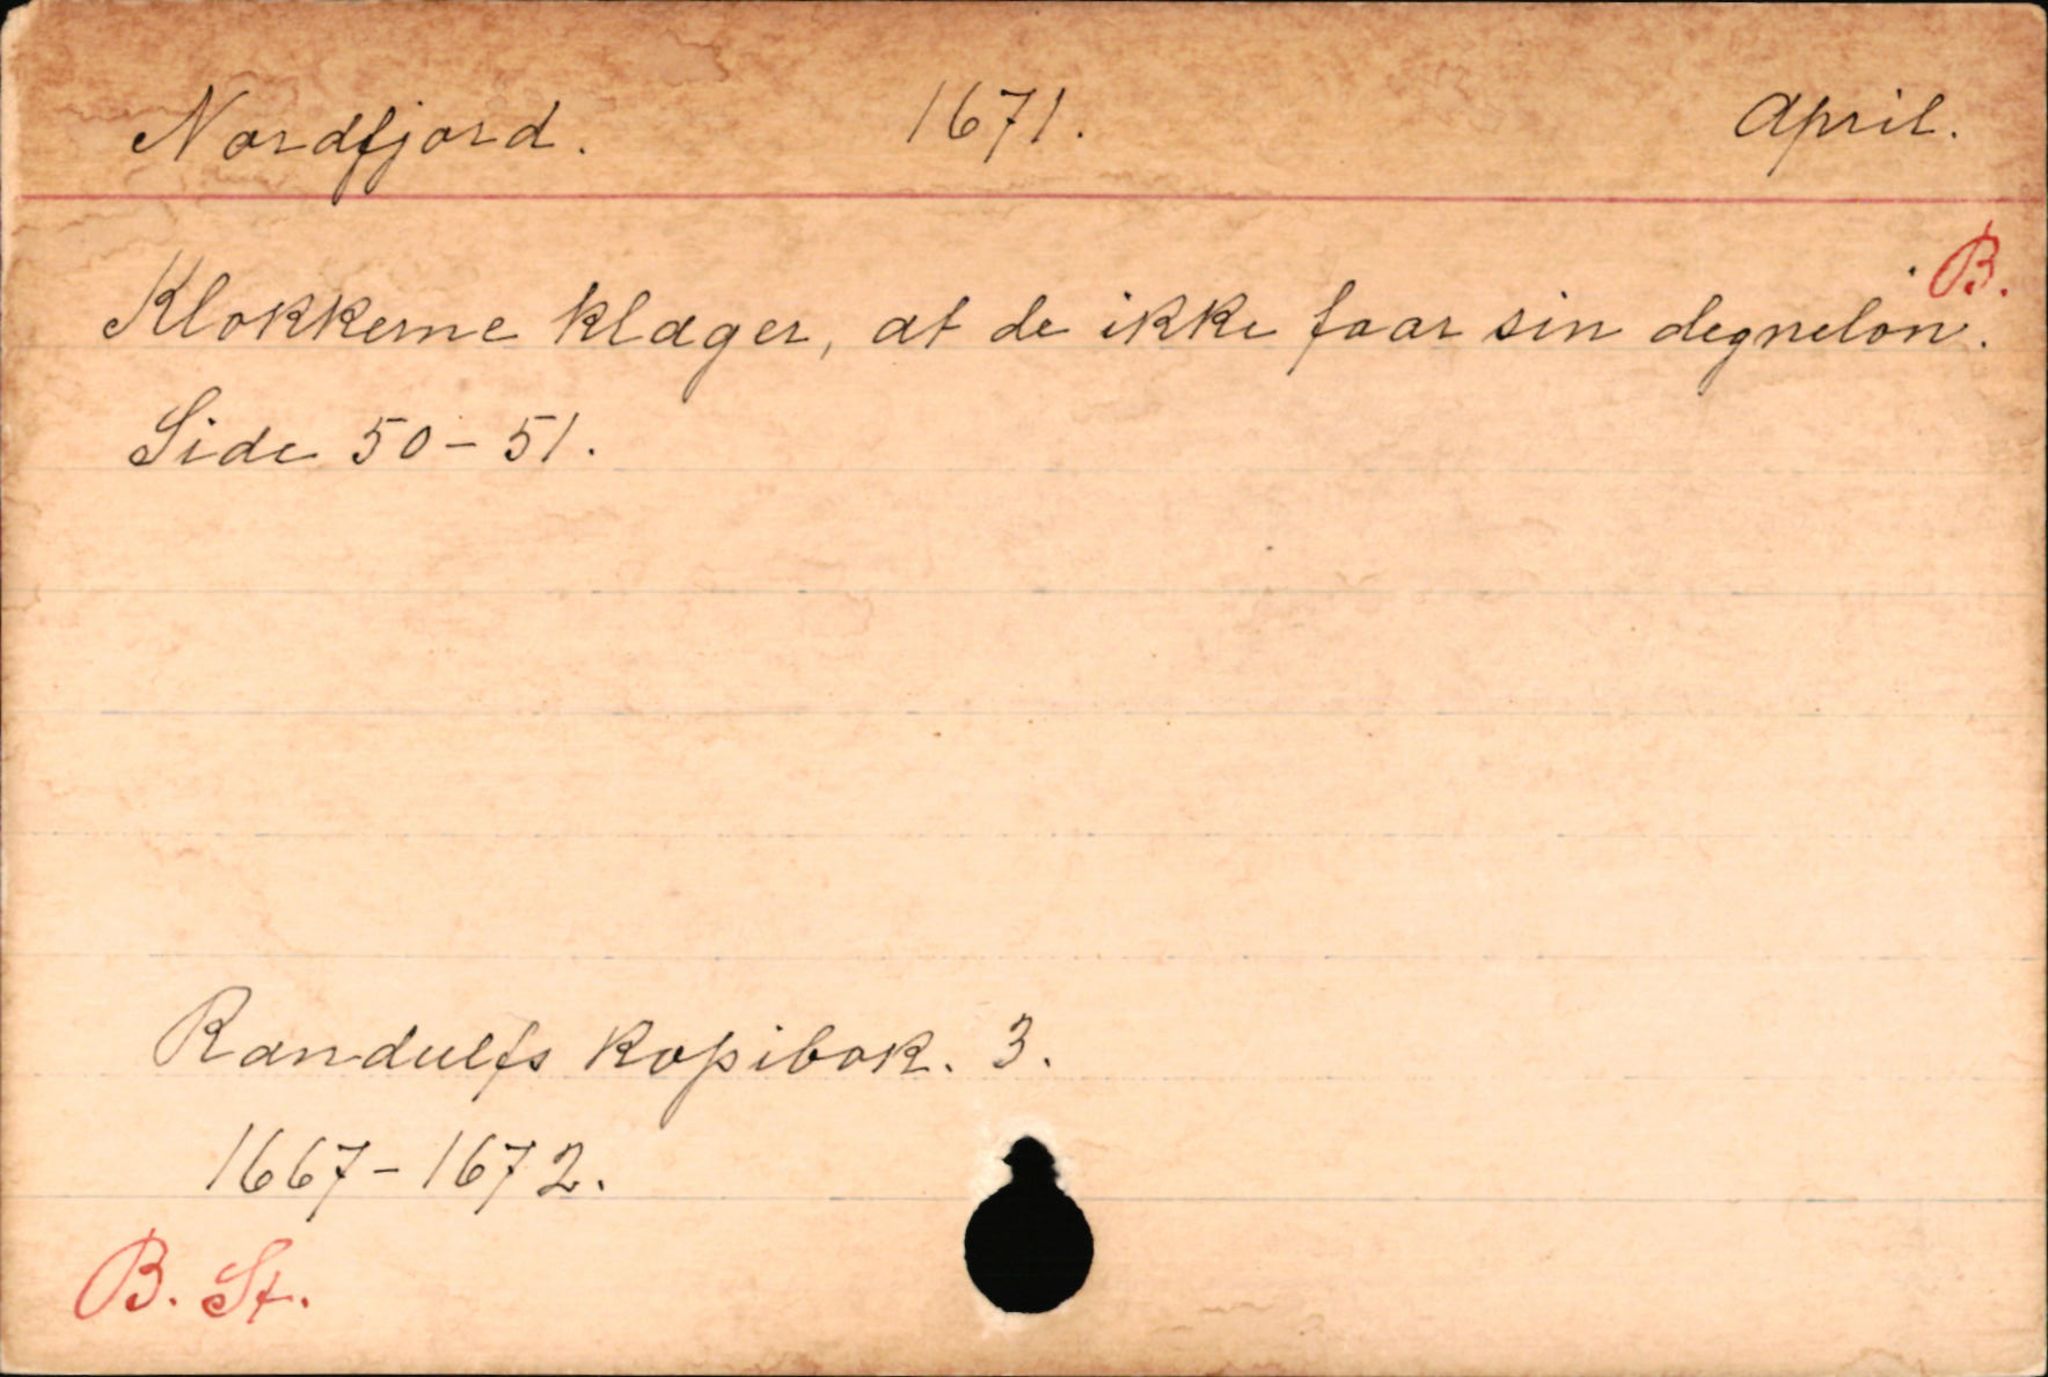 Nordfjord. 1671. April.
B.
Klokkerne klager, at de ikke faar sin degnelön.
Side 50-51.
Randulfs kopibok. 3.
1667-1672.
B. St.